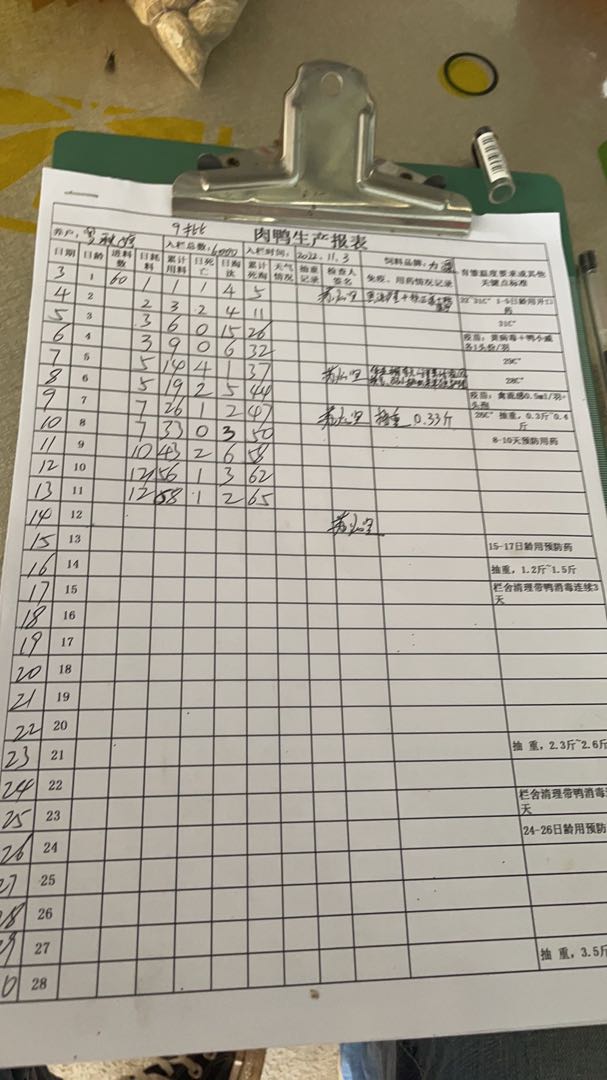 9批
肉鸭生产报表
养户: 入栏总数:6000 入栏时间: 2022.11.3 饲料品牌:
日期 日龄 进料数 日耗料 累计用料 日死亡 日淘汰 累计死淘 天气情况 抽重记录 检查人签名 免疫、用药情况记录 育雏温度要求或其他关键点标准
3 1 60 1 1 1 4 5
4 2 2 3 2 4 11 32 31C° 1-5日龄用开口药
5 3 3 6 0 15 26 31C°
6 4 3 9 0 6 32 疫苗:黄病毒+鸭小减各1头份/羽
7 5 5 14 4 1 37 29C°
8 6 5 19 2 5 44 28C°
9 7 7 26 1 2 47 抽重 0.33斤 疫苗:禽流感0.5ml/羽+头孢
10 8 7 33 0 3 50 28C° 抽重,0.3斤~0.4斤
11 9 10 43 2 6 58 8-10天预防用药
12 10 12 56 1 3 62
13 11 12 68 1 2 65
14 12
15 13 15-17日龄用预防药
16 14 抽重,1.2斤~1.5斤
17 15 栏舍清理带鸭消毒连续3天
18 16
19 17
20 18
21 19
22 20
23 21 抽 重,2.3斤~2.6斤
24 22
25 23 栏舍清理带鸭消毒
天
26 24 24-26日龄用预防
27 25
28 26
29 27 抽 重,3.5斤
0 28